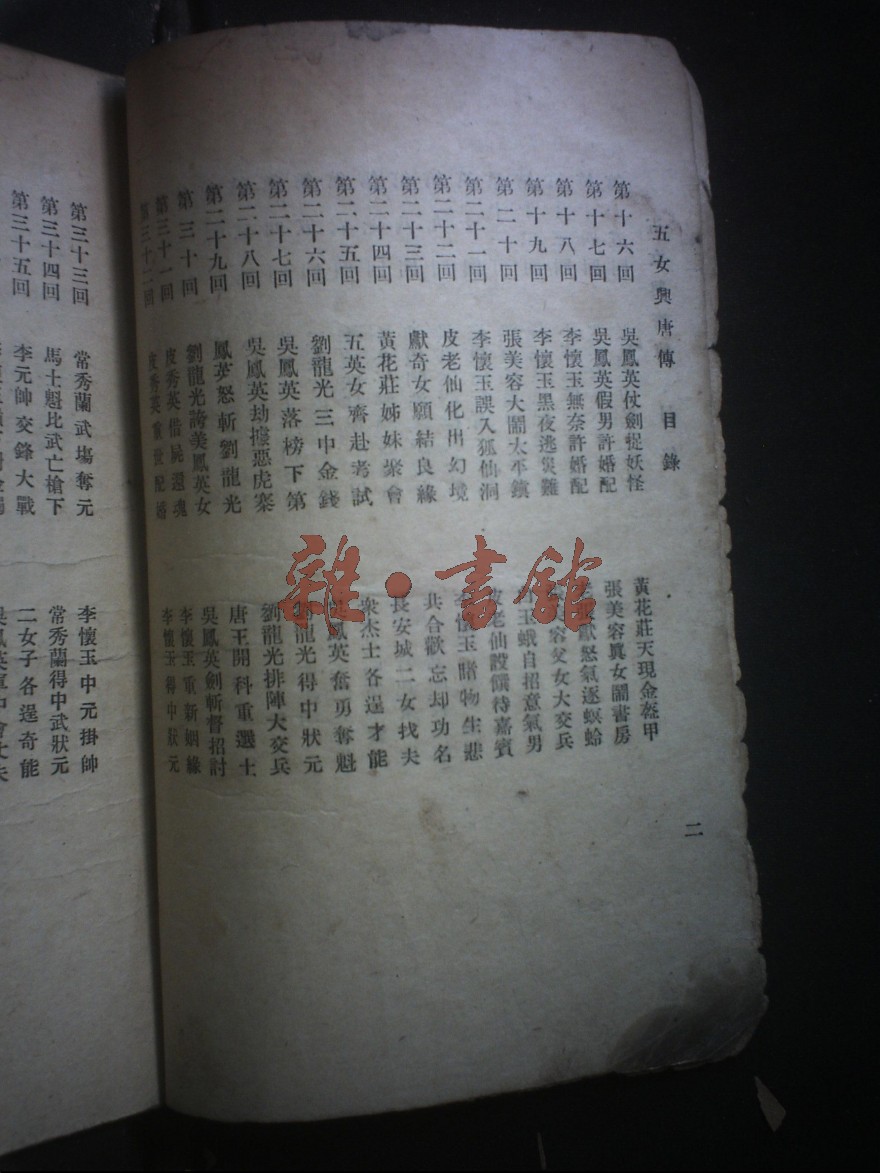 五女興唐傳 目錄
第十六回 吳鳳英仗劍捉妖怪 黃花莊天現金盔甲
第十七回 吳鳳英假男許婚配 張美容眞女鬧書房
第十八回 李懷玉無奈許婚配 獸怒氣逐螟蛉
第十九回 李懷玉黑夜逃災難 容父女大交兵
第二十回 張美容大鬧太平鎮 玉蛾自招意氣男
第二十一回 李懷玉誤入狐仙洞 皮老仙設饌待嘉賓
第二十二回 皮老仙化出幻境 李懷玉睹物生悲
第二十三回 獻奇女願結良緣 共合歡忘却功名
第二十四回 黃花莊姊妹衆會 長安城二女找夫
第二十五回 五英女齊赴考試 衆杰士各逞才能
第二十六回 劉龍光三中金錢 吳鳳英奮勇奪魁
第二十七回 吳鳳英落榜下第 劉龍光得中狀元
第二十八回 吳鳳英劫擄惡虎寨 劉龍光排陣大交兵
第二十九回 鳳英怒斬劉龍光 唐王開科重選士
第三十回 劉龍光誇美鳳英女 吳鳳英劍斬督招討
第三十一回 皮秀英借屍還魂 李懷玉重新姻緣
第三十二回 皮秀英重發配婚 李懷玉得中狀元
二
第三十三回 常秀蘭武塲奪元 李懷玉中元掛帥
第三十四回 馬士魁比武亡槍下 常秀蘭得中武狀元
第三十五回 李元帥交鋒大戰 二女子各逞奇能
雜·書館